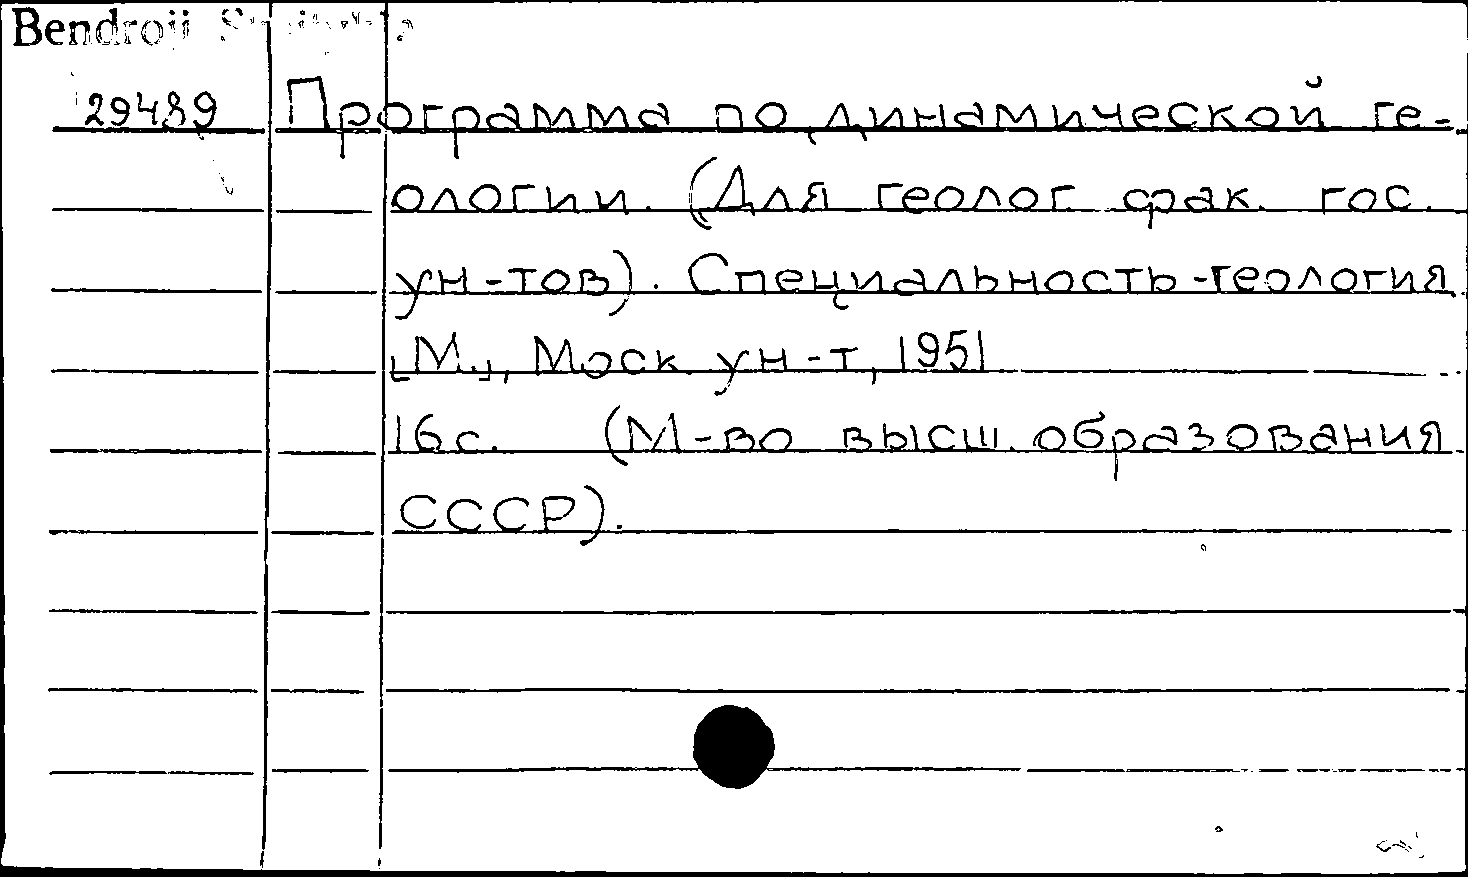 Bendroji
29489
Программа по динамической ге-
ологии. (Для геолог. фак. гос.
ун-тов). Специальность-геология
[М.], Моск. ун-т, 1951
16 с. (М-во высш. образования
СССР).